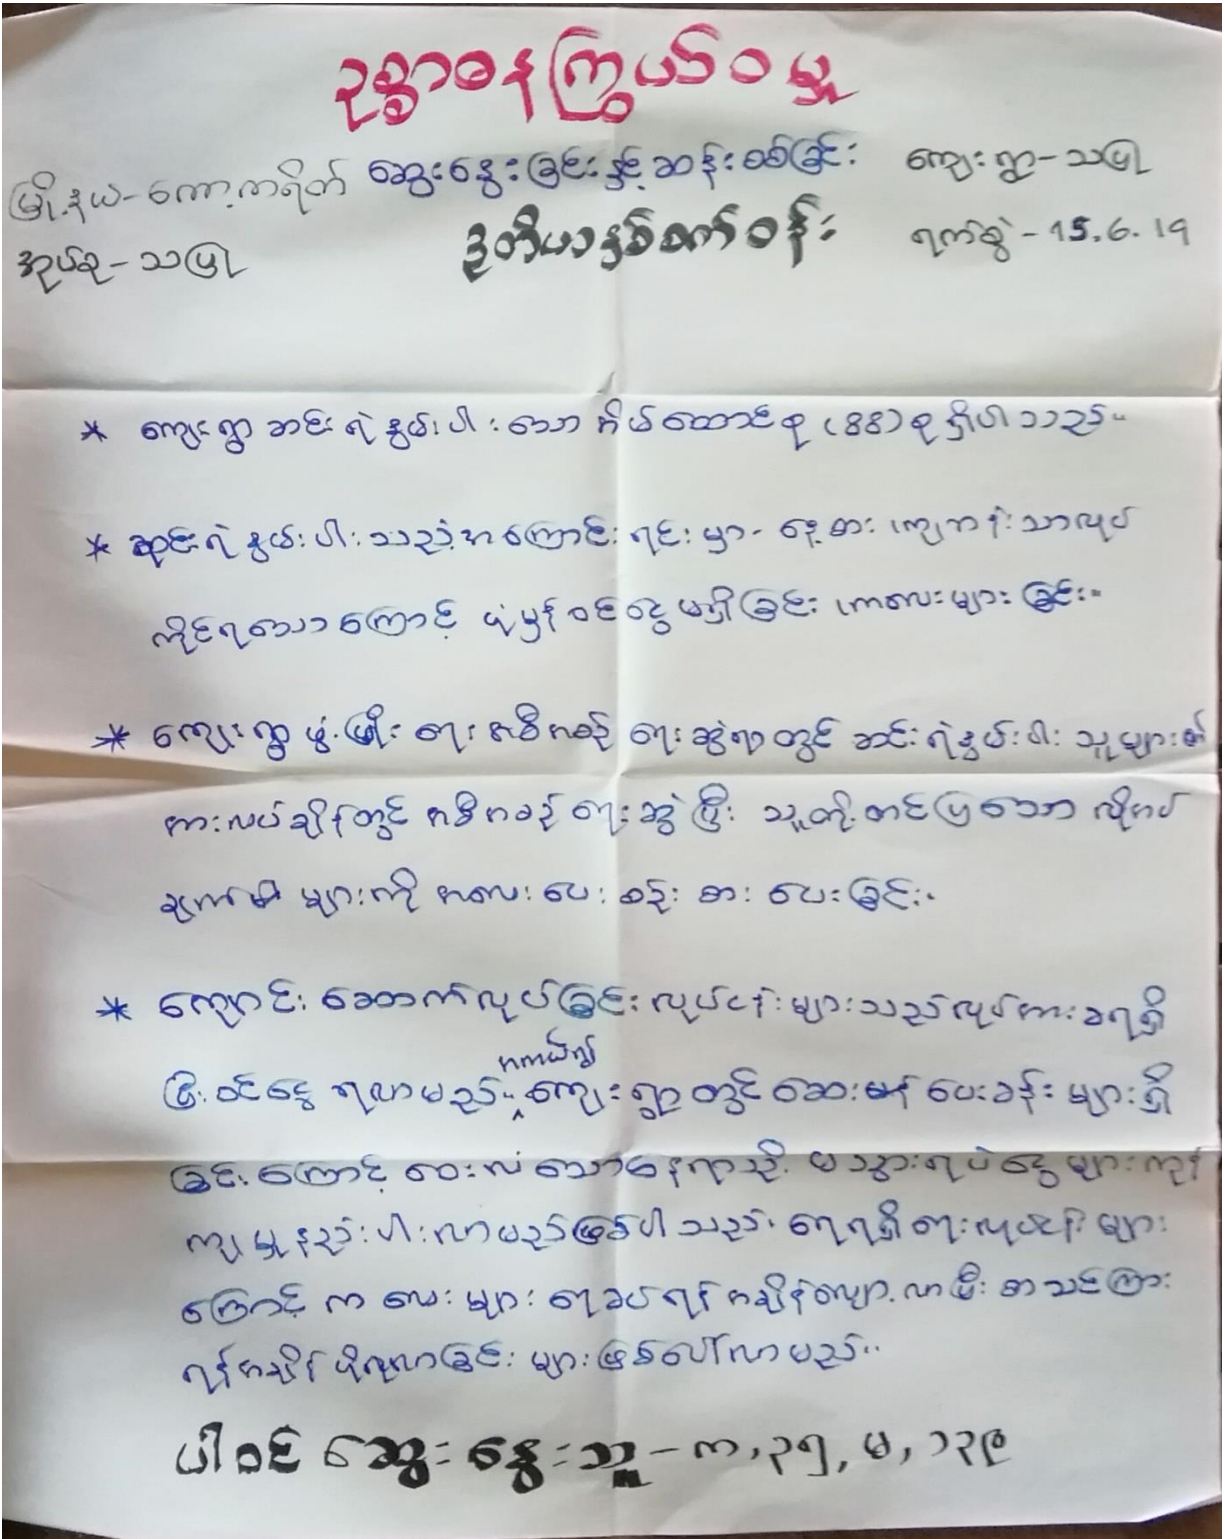 ဥစ္စာဓနကြွယ်ဝမှု
မြို့နယ်-ကော့ကရိတ် ဆွေးနွေးခြင်းနှင့်ဆန်းစစ်ခြင်း ကျေးရွာ-သပြု
အုပ်စု-သပြု ဒုတိယနှစ်စက်ဝန်း ရက်စွဲ-15.6.19
* ကျေးရွာဆင်းရဲနွမ်းပါးသောအိမ်ထောင်စု (88) စုရှိပါသည်။
* ဆင်းရဲနွမ်းပါးသည့်အကြောင်းရင်းမှာ- နေ့စားကျပန်းသာလုပ်
ကိုင်ရသောကြောင့် ပုံမှန်ဝင်ငွေမရှိခြင်း ကလေးများခြင်း။
* ကျေးရွာဖွံ့ဖြိုးရေးအစီအစဉ်ရေးဆွဲရာတွင် ဆင်းရဲနွမ်းပါးသူများ၏
အားလပ်ချိန်တွင် အစီအစဉ်ရေးဆွဲပြီး သူတို့တင်ပြသော လိုအပ်
ချက်များကို အလေးပေးစဉ်းစားပေးခြင်း။
* ကျောင်းဆောက်လုပ်ခြင်းလုပ်ငန်းများသည်လုပ်အားခရရှိ
ပြီးဝင်ငွေရလာမည်။ အကယ်၍ ကျေးရွာတွင်ဆေးပေးခန်းများရှိ
ခြင်းကြောင့် ဝေးလံသောနေရာသို့ မသွားရပဲငွေများကုန်
ကျမှုနည်းပါးလာမည်ဖြစ်ပါသည်။ ရေရရှိရေးလုပ်ငန်းများ
ကြောင့် ကလေးများ ရေခပ်ရန်အချိန်လျော့လာပြီး စာသင်ကြား
ရန်အချိန်ပိုလာခြင်းများဖြစ်ပေါ်လာမည်။
ပါဝင်ဆွေးနွေးသူ-က, ၃၅, မ, ၁၃၉